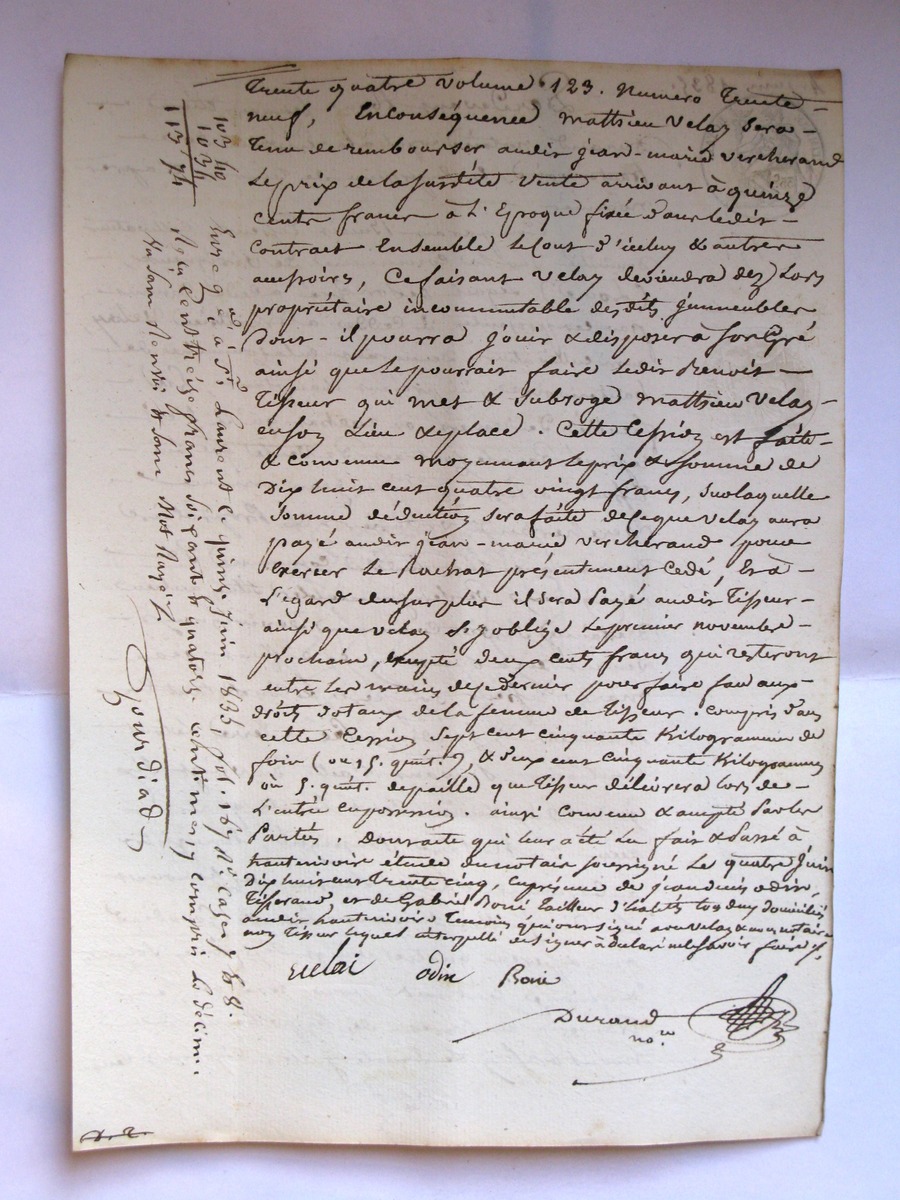 trente quatre volume 123. numero trente-
neuf, Enconséquence mathieu velay sera-
tenu de rembourser audit jean-marie vercherand
le prix de la susdite vente arrivant à quinze
cents francs à l'Epoque fixée dans ledit-
contract Ensemble le cout d'iceluy & autres
accessoires, Ce faisant velay deviendra dez lors
propriétaire incommutable desdits jmmeubles
dont-il pourra jouir & disposer à son Gré
ainsi que le pourrait faire ledit Benoit-
Tisseur qui met & subroge mathieu velay-
en son Lieu & place. Cette Cession est faite-
& convenue moyennant le prix & somme de
Dix huit cent quatre vingt francs, sur laquelle
somme déduction sera faite de ce que velay aura
payé audit jean-marie vercherand pour
Exercer le Rachat présentement Cedé, Et à-
l'egard du surplus il sera payé audit Tisseur-
ainsi que velay s'y oblige le premier novembre-
prochain, excepté deux cents francs qui resteront
entre les mains de ce dernier pour faire face aux-
droits dotaux de la femme de Tisseur. compris dans
cette Cession sept cent cinquante Kilogrammes de
foin (ou 15. quint.x), & deux cent cinquante Kilogrammes
ou 5. quint. de paille que Tisseur délivrera lors de-
l'entrée en possession. ainsi convenu & accepté par les
Parties. Dont acte qui leur a été lu fait & passé à
hauterivoire étude du notaire soussigné le quatre Juin
Dix huit cent trente cinq, En présence de jean denis odin,
Tisserand, et de Gabriel Boni tailleur d'habits tous deux domiciliés
audit hauterivoire Temoins qui ont signé avec velay & nous notaire
non Tisseur lequel interpellé de signer a déclaré ne le savoir faire
velai odin Boni
Durand
no.re
103 40
10 34
113 74
Enreg.é à S.t Laurent le quinze juin 1835, fol. 167 R.o cases 7 & 8.
Reçu cent treize francs soixante & quatorze centimes y compris le décime
Gourdiad